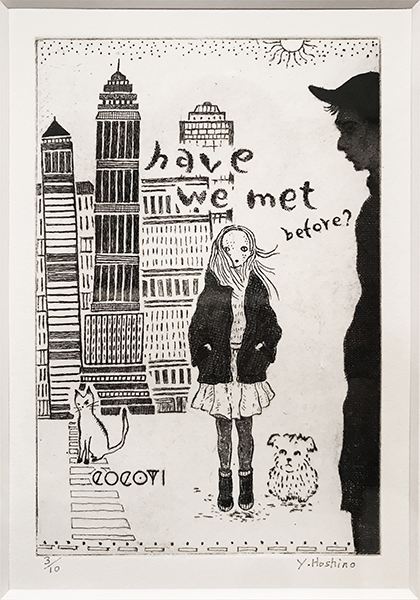 have
we met
before?
COCOVI
3/10
Y. Hoshino